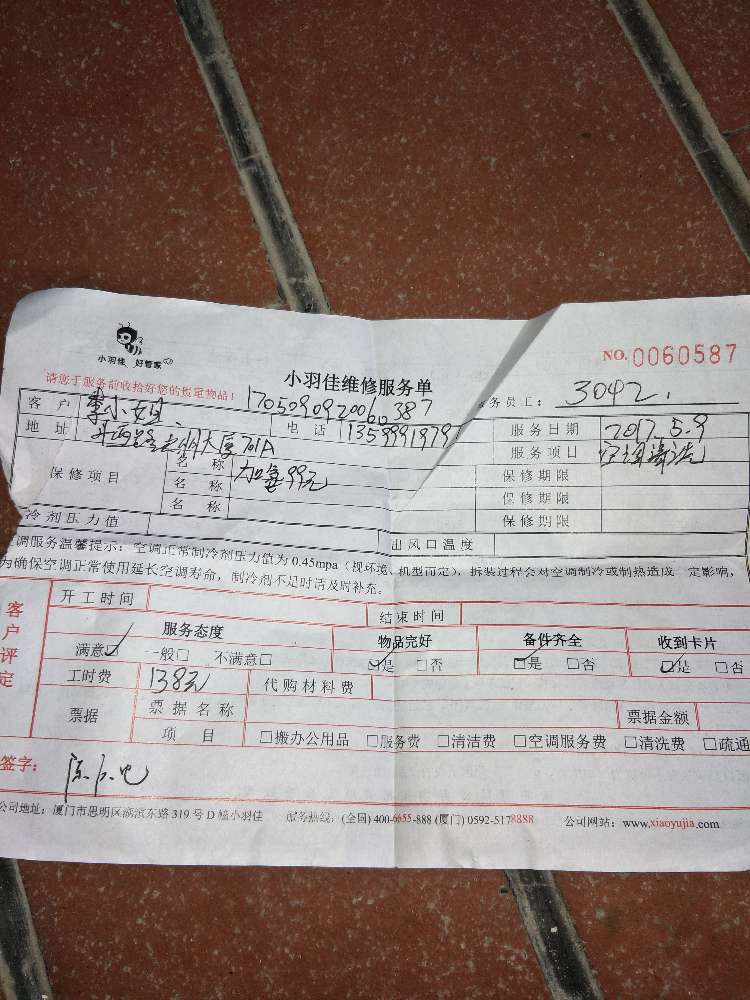 小羽佳 好管家
NO. 0060587
小羽佳维修服务单
请您于服务前收拾好您的贵重物品！
170509092006 387
务员工： 3042
客户 李小姐
电话 13599991979
服务日期 2017.5.9
地址 大厦701A
服务项目 空调清洗
保修项目
名称 加氟99元
保修期限
名称
保修期限
名称
保修期限
冷剂压力值
出风口温度
调服务温馨提示：空调正常制冷剂压力值为0.45mpa（视环境、机型而定），拆装过程会对空调制冷或制热造成 定影响，
为确保空调正常使用延长空调寿命，制冷剂不足时请及时补充。
客户评定
开工时间
结束时间
服务态度
物品完好
备件齐全
收到卡片
满意☑ 一般□ 不满意□
☑是 □否
☑是 □否
☑是 □否
工时费 138元 代购材料费
票据
票据名称
票据金额
项目 □搬办公用品 □服务费 □清洁费 □空调服务费 □清洗费 □疏通
签字：
公司地址：厦门市思明区湖滨东路319号D幢小羽佳 服务热线：(全国)400-6655-888 (厦门) 0592-5178888 公司网站：www.xiaoyujia.com